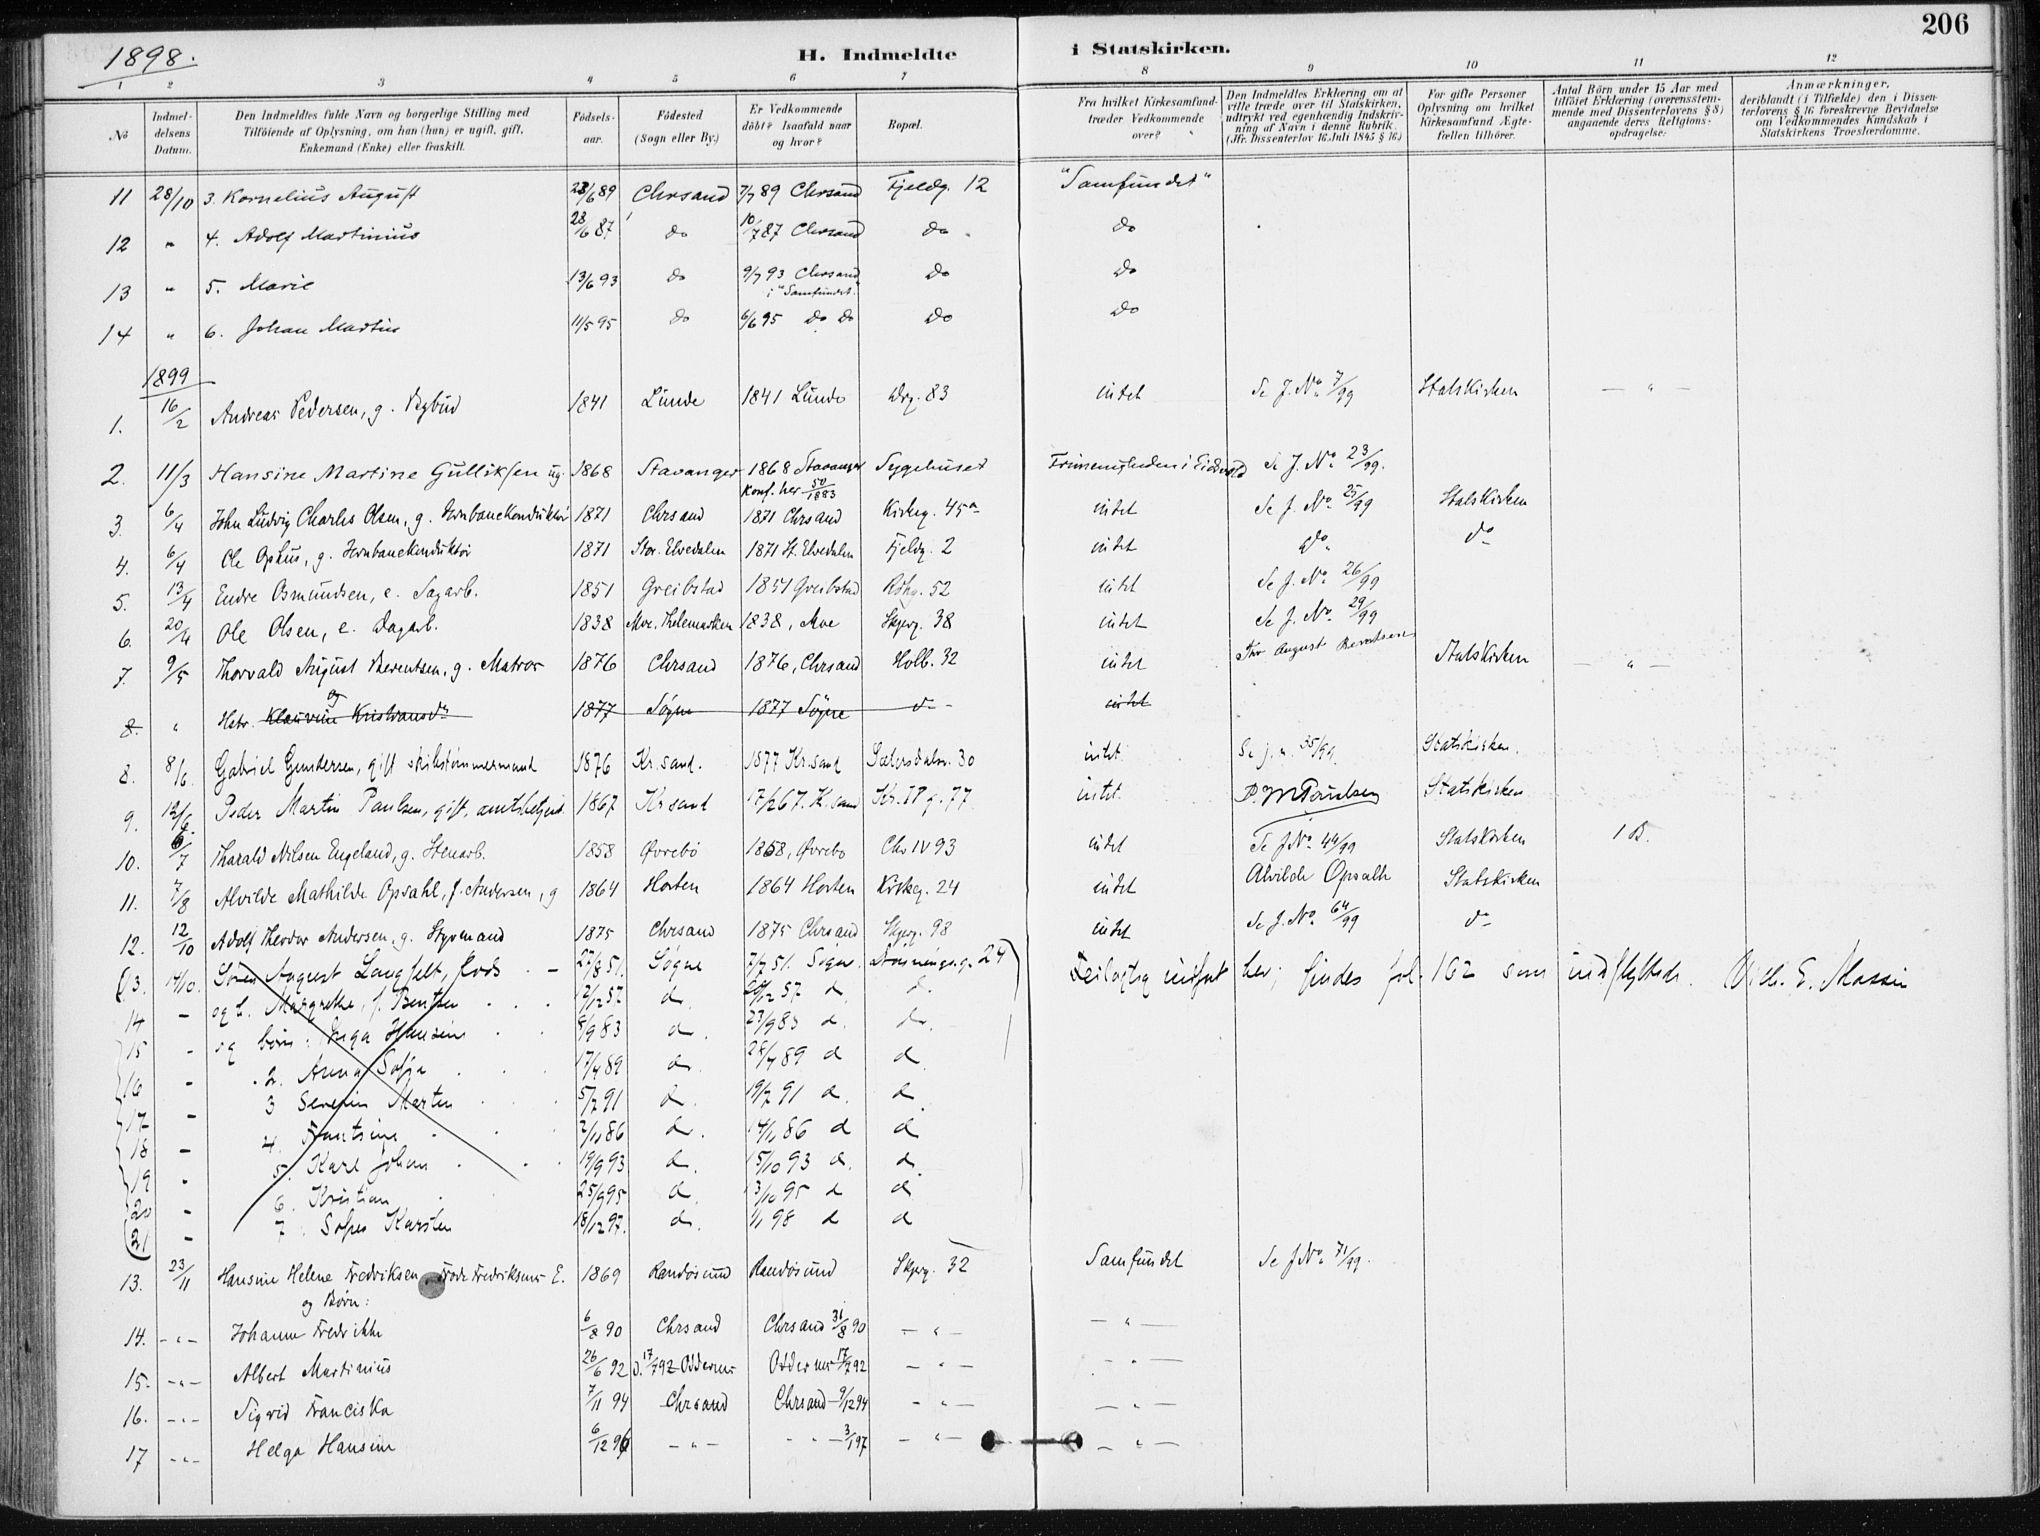 206
1898.
H. Indmeldte i Statskirken.
1 2 3 4 5 6 7 8 9 10 11 12
No
Indmel-
delsens
Datum.
Den Indmeldtes fulde Navn og borgerlige Stilling med
Tilföiende af Oplysning, om han (hun) er ugift, gift,
Enkemand (Enke) eller fraskilt.
Födsels-
aar.
Födested
(Sogn eller By.)
Er Vedkommende
döbt? Isaafald naar
og hvor?
Bopæl.
Fra hvilket Kirkesamfund
træder Vedkommende
over?
Den Indmeldtes Erklæring om at
ville træde over til Statskirken,
udtrykt ved egenhændig Indskriv-
ning af Navn i denne Rubrik.
(Jfr. Dissenterlov 16. Juli 1845 § 16.)
For gifte Personer
Oplysning om hvilket
Kirkesamfund Ægte-
fællen tilhörer.
Antal Börn under 15 Aar med
tilföiet Erklæring (overensstem-
mende med Dissenterlovens § 8)
angaaende deres Religions-
opdragelse.
Anmærkninger,
deriblandt (i Tilfælde) den i Dissen-
terlovens § 16 foreskrevne Bevidnelse
om Vedkommendes Kundskab i
Statskirkens Troeslærdomme.
11 28/10 3. Kornelius August 23/6 89 Chrsand 7/7 89 Chrsand Fjeldg. 12 "Samfundet"
12 " 4. Adolf Martinius 28/6 87 do 10/7 87 Chrsand do do
13 " 5. Marie 13/6 93 do 9/7 93 Chrsand i "Samfundet" do do
14 " 6. Johan Martin 11/5 95 do 6/6 95 do do do do
1899
1. 16/2 Andreas Pedersen, g. Bybud 1841 Lunde 1841 Lunde Drg. 83 intet Se J. No. 7/99 Statskirken — " —
2. 11/3 Hansine Martine Gulliksen ug. 1868 Stavanger 1868 Stavanger Konf. her 50/1883 Sygehuset Frimenigheden i Eidsvold Se J. No. 23/99.
3. 6/4 John Ludvig Charles Olsen, g. Jernbanekonduktør 1871 Chrsand 1871 Chrsand Kirkeg. 45a intet Se J. No. 25/99 Statskirken
4. 6/4 Ole Ophus, g. Jernbanekonduktør 1871 Stor. Elvedalen 1871 St. Elvedalen Fjeldg. 2 intet do do
5. 13/4 Endre Osmundsen, e. Sagarb. 1851 Greibstad 1851 Greibstad 52 intet Se J. No. 26/99
6. 20/4 Ole Olsen, e. Dagarb. 1838 Moe. Thelemarken 1838, Moe Skjerg. 38 intet Se J. No. 29/99
7. 9/5 Thorvald August Berentsen, g. Matros 1876 Chrsand 1876, Chrsand Holb. 32 intet Thv August Berentsen Statskirken — " —
8. " og Hstr. Klausine Kristiansdr 1877 Søgne 1877 Søgne do intet
8. 8/6 Gabriel Gundersen, gift skibstømmermand 1876 Kr.sand. 1877 Kr.sand Sætersdalsv. 30 intet Se j. n. 35/99. Statskirken.
9. 12/6. Peder Martin Paulsen, gift, amtsbetjent 1867 Krsand 17/2 67. K.sand Kr. IV g. 77 intet. P. M Paulsen Statskirken
10. 6/7 Tharald Nilsen Engeland, g. Stenarb. 1858 Øvrebø 1858, Øvrebø Chr IV 93 intet Se J No. 44/99 Statskirken 1 B.
11. 7/8 Alvilde Mathilde Opsahl, f. Andersen, g 1864 Horten 1864 Horten Kirkeg. 24 intet Alvilde Opsalh Statskirken
12. 12/10 Adolf Theodor Andersen, g. Styrmand 1875 Chrsand 1875 Chrsand Skjerg. 98 intet Se J. No. 64/99 do
13. 14/10. Sören August Langfelt, Lods 27/8 51. Søgne 7/7 51. Søgne. Dronningensg. 24 Feilagtig indført her; findes fol. 162 som indflyttede. Vilh. E. Massin
14 - og h. Margrethe, f. Bentsen 12/12 57 d. 57 d. d.
15 - og børn: Inga Hansine 8/9 83 d. 23/9 83 d. do.
16 - 2. Anna Sofja 17/4 89 d. 28/4 89 d d
17 - 3 Severin Martin 5/7 91 d. 19/7 91 d. d.
18 - 4. 2/11 86 d. 14/11 86 d d
19 - 5. Karl Johan 19/9 93 d. 15/10 93 d. d.
20 - 6. Kristian 25/9 95 d. 13/10 95 d d
21 - 7. Karsten 18/12 97. d. 1/1 98 d d
13. 23/11 Hansine Helene Fredriksen Tode Fredriksens E. 1869 Randøsund Randøsund Skjerg. 32 Samfundet Se J No. 71/99.
og Børn:
14. — " — Johanne Fredrikke 6/8 90 Chrsand Chrsand 31/8 90 — " — — " —
15. — " — Albert Martinius 26/6 92 d. 17/7 92 Oddernes Oddernes 17/7 92 — " — — " —
16. — " — Sigrid Franciska 7/11 94 Chrsand Chrsand 9/12 94 — " — — " —
17 — " — Helga Hansine 6/12 96 — " — — " — 3/1 97 — " — — " —